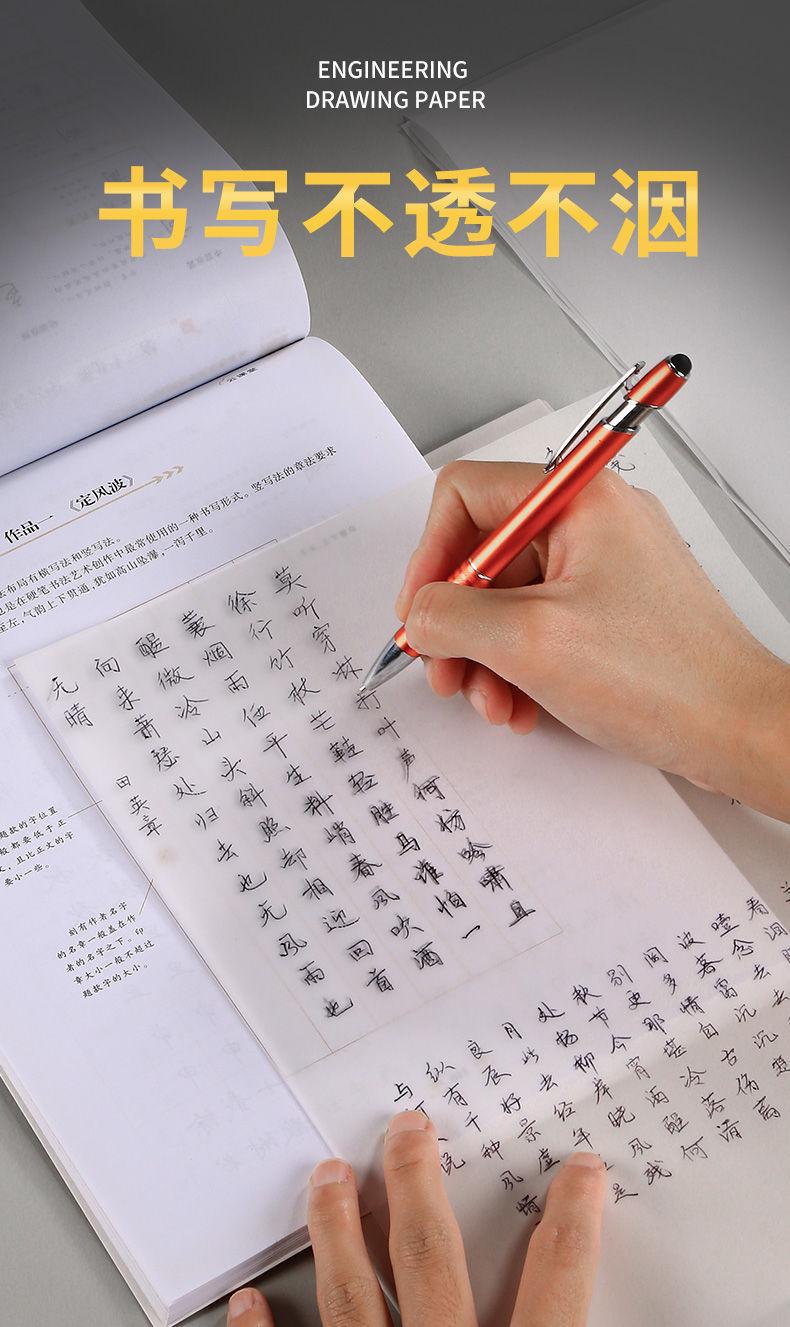 ENGINEERING
DRAWING PAPER
书写不透不洇
作品一 《定风波》
布局有横写法和竖写法。
是在硬笔书法艺术创作中最常使用的一种书写形式。竖写法的章法要求
至左，气韵上下贯通，犹如高山坠瀑，一泻千里。
莫听穿林打叶声何妨吟啸且
徐行竹杖芒鞋轻胜马谁怕一
蓑烟雨任平生料峭春风吹酒
醒微冷山头斜照却相迎回首
向来萧瑟处归去也无风雨也
无晴
田英章
题款的字位置
般都要低于正
文，且比正文的字
要小一些。
刻有作者名字
的名章一般盖在作
者的名字之下。印
章大小一般不超过
题款字的大小。
看泪
噎念去去
波暮霭沉沉楚
阔多情自古伤
别更那堪冷落清
秋节今宵酒醒何
处杨柳岸晓风残
月此去经年
良辰好景虚
纵有千种风情
与